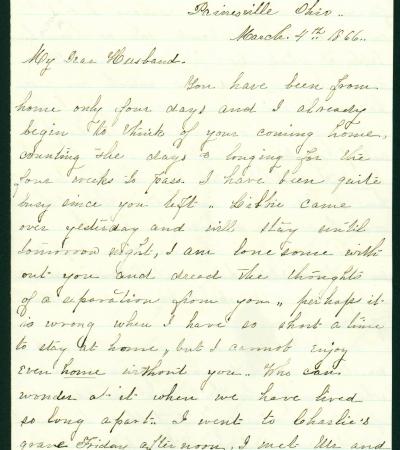 Painesville Ohio..
March. 4th 1866..
My Dear Husband.
You have been from
home only four days and I already
begin to think of your coming home,
counting the days & longing for the
four weeks to pass. I have been quite
busy since you left .. Libbie came
over yesterday and will stay until
tomorrow night, I am lonesome with
out you and dread the thoughts
of a separation from you,, perhaps it
is wrong when I have so short a time
to stay at home, but I cannot enjoy
even home without you.. Who can
wonder at it when we have lived
so long apart.. I went to Charlie's
grave Friday afternoon, I met Mr and